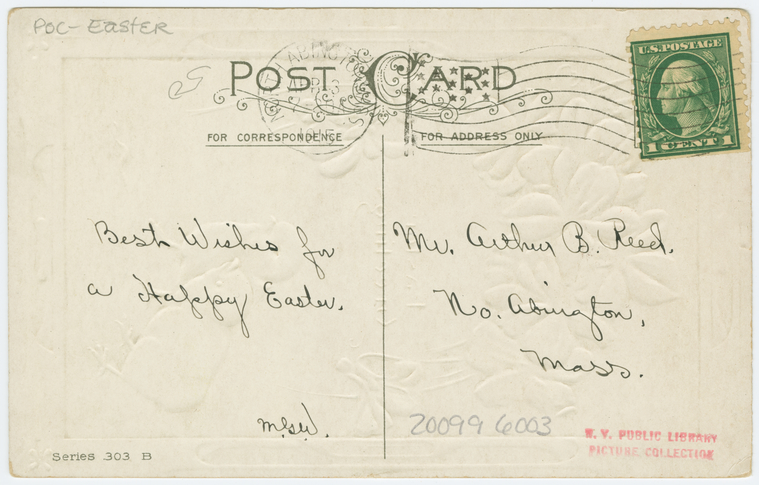 POC - EASTER
U.S. POSTAGE
1 CENT 1
POST CARD
FOR CORRESPONDENCE
FOR ADDRESS ONLY
Best Wishes for
a Happy Easter.
M.G.W.
Mr. Arthur B. Reed.
No. Abington,
Mass.
20099 6003
N. Y. PUBLIC LIBRARY
PICTURE COLLECTION
Series 303 B